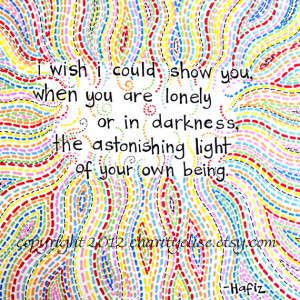 I wish I could show you,
when you are lonely
or in darkness,
the astonishing light
of your own being.
copyright 2012 charityelise.etsy.com
-Hafiz